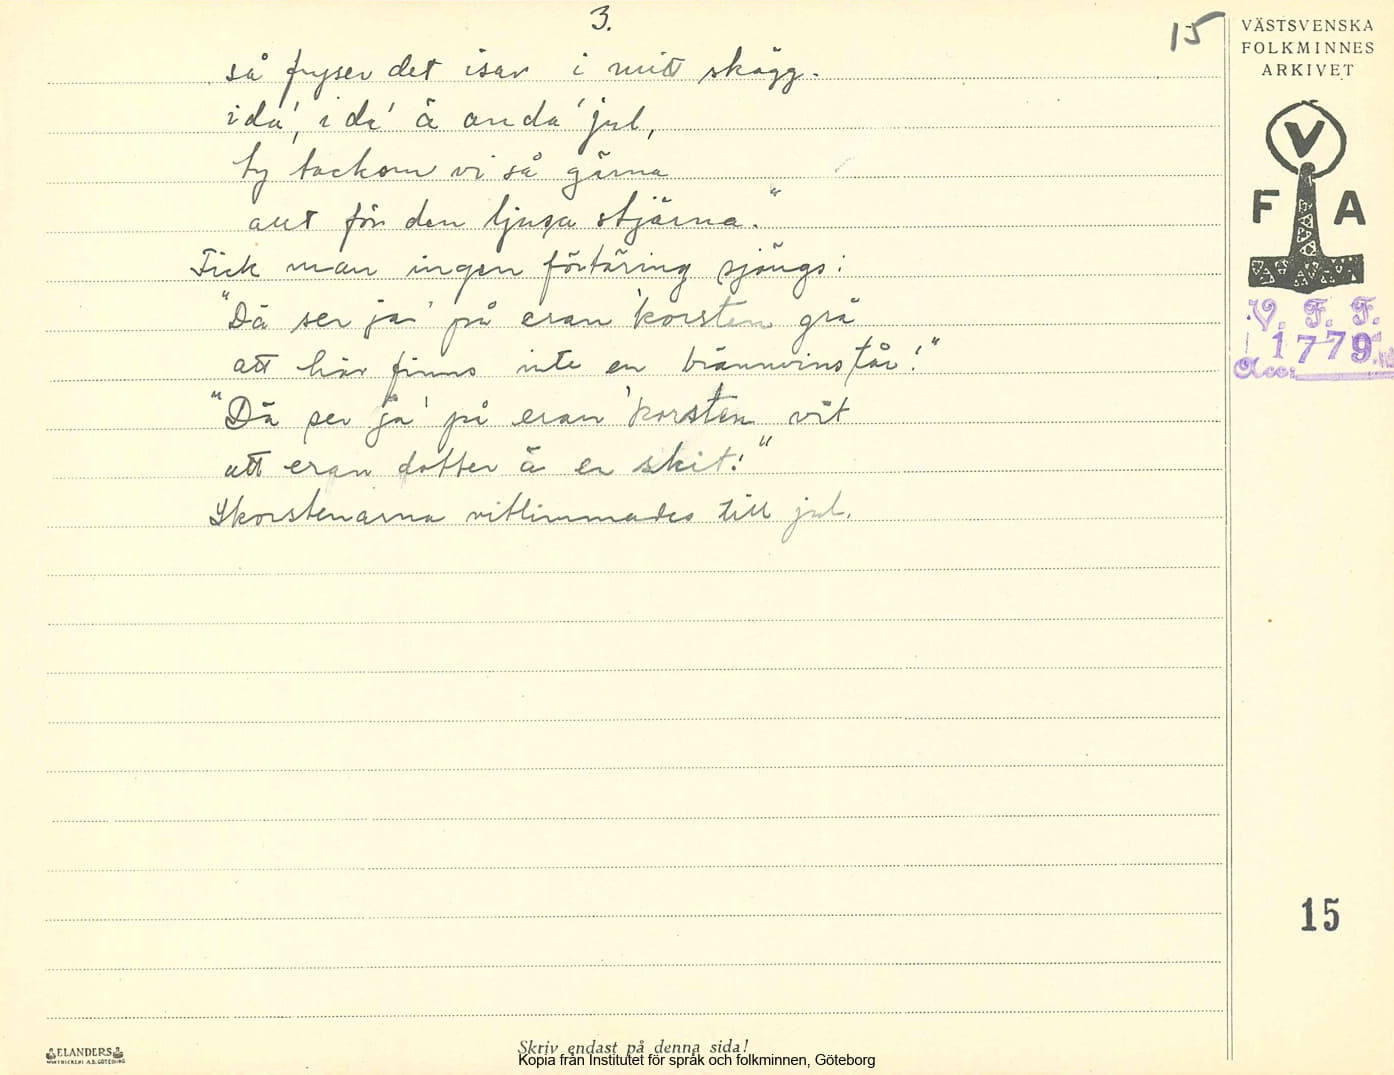 3.
15
VÄSTSVENSKA
FOLKMINNES
ARKIVET
V
F A
V. F. F.
1779
Acc:
så fryser det isar i mitt skägg.
i da', i da' ä anda' jul,
ty tackom vi så gärna
allt för den ljusa stjärna."
Fick man ingen förtäring sjöngs:
"Dä ser ja' på eran 'korsten grå
att här finns inte en brännvinstår!"
"Dä ser ja' på eran 'korsten vit
att eran dotter ä en skit!"
Skorstenarna vitlimmades till jul.
15
ELANDERS
Skriv endast på denna sida!
Kopia från Institutet för språk och folkminnen, Göteborg